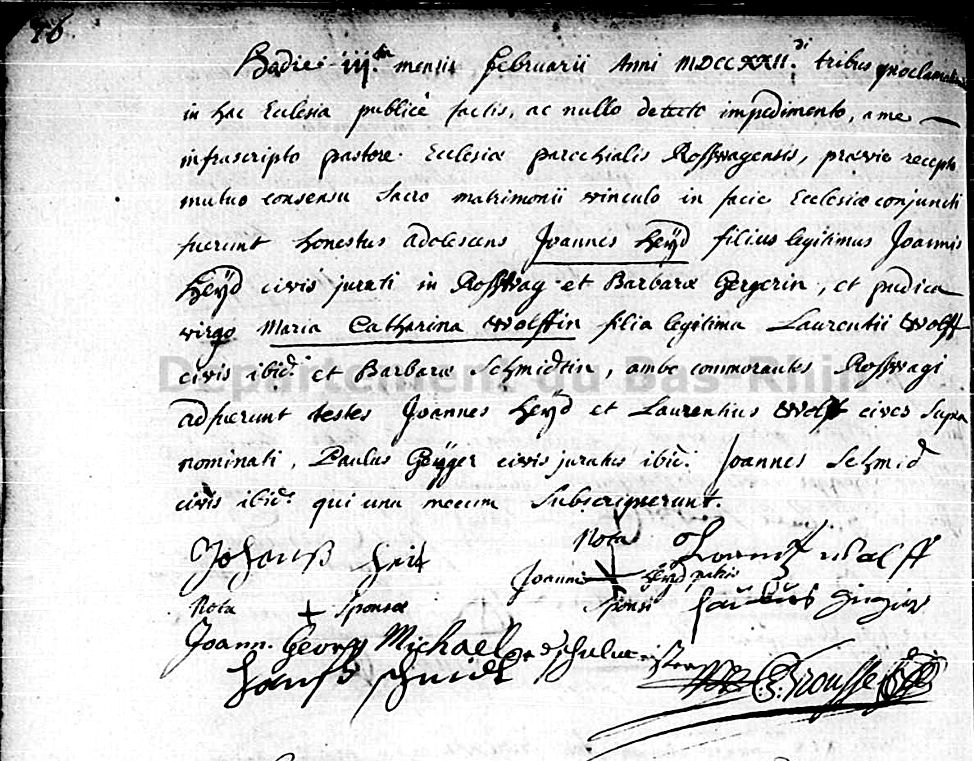 26.
Hodie iii.tia mensis Februarii Anni MDCCXXII.di tribus proclamation
in hac Ecclesia publicè factis, ac nullo detecto impedimento, a me
infrascripto pastore Ecclesiæ parochialis Rosswagensis, prævie recepto
mutuo consensu Sacro matrimonii vinculo in facie Ecclesiæ conjuncti
fuerunt honestus adolescens Joannes Heÿd filius legitimus Joannis
Heÿd civis jurati in Rosswag et Barbaræ Gergerin, et pudica
virgo Maria Catharina Wolffin filia legitima Laurentii Wolff
civis ibid. et Barbaræ Schmidtin, ambo commorantes Rosswagi
Departement du Bas-Rhin
adfuerunt testes Joannes Heÿd et Laurentius Wolff cives supra
nominati, Paulus Geÿger civis juratus ibid. Joannes Schmid
civis ibid. qui una mecum subscripserunt.
Johanß Heit Nota Lorentz Wolff
Joannis + Heÿd patris
Nota + Sponsæ Sponsi
Joann. Georg Michael
Hanß Schmidt C. Trousset